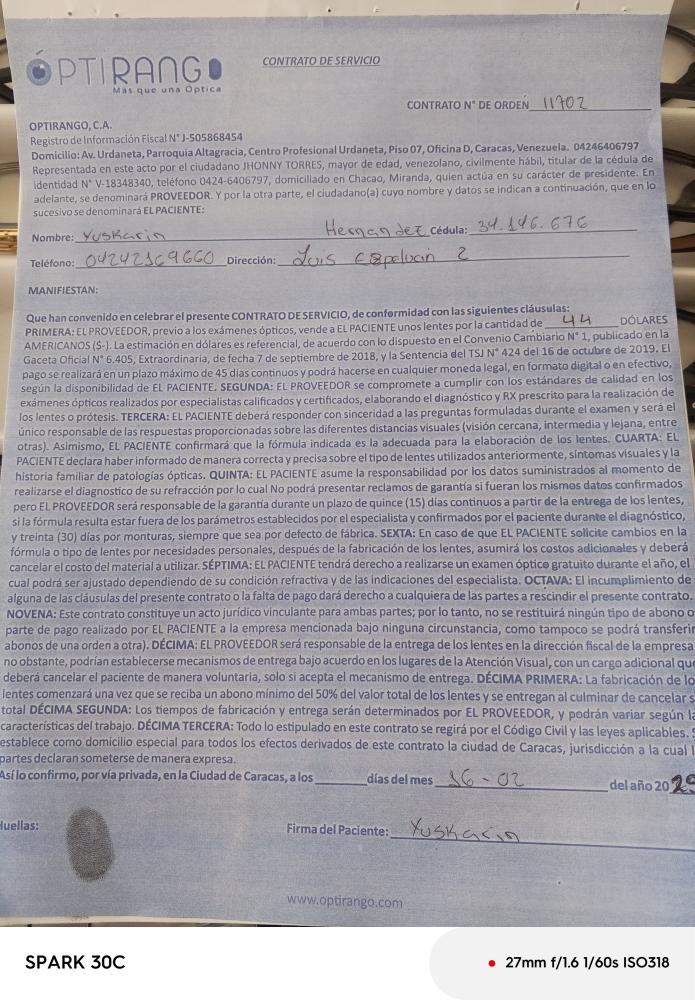 ÓPTIRANGO
Más que una Óptica
CONTRATO DE SERVICIO
CONTRATO N° DE ORDEN 11702
OPTIRANGO, C.A.
Registro de Información Fiscal N° J-505868454
Domicilio: Av. Urdaneta, Parroquia Altagracia, Centro Profesional Urdaneta, Piso 07, Oficina D, Caracas, Venezuela. 04246406797
Representada en este acto por el ciudadano JHONNY TORRES, mayor de edad, venezolano, civilmente hábil, titular de la cédula de
identidad N° V-18348340, teléfono 0424-6406797, domiciliado en Chacao, Miranda, quien actúa en su carácter de presidente. En
adelante, se denominará PROVEEDOR. Y por la otra parte, el ciudadano(a) cuyo nombre y datos se indican a continuación, que en lo
sucesivo se denominará EL PACIENTE:
Nombre: Yuskarin Hernandez Cédula: 34.146.676
Teléfono: 04242169660 Dirección: Luis 2
MANIFIESTAN:
Que han convenido en celebrar el presente CONTRATO DE SERVICIO, de conformidad con las siguientes cláusulas:
PRIMERA: EL PROVEEDOR, previo a los exámenes ópticos, vende a EL PACIENTE unos lentes por la cantidad de 44 DÓLARES
AMERICANOS ($-). La estimación en dólares es referencial, de acuerdo con lo dispuesto en el Convenio Cambiario N° 1, publicado en la
Gaceta Oficial N° 6.405, Extraordinaria, de fecha 7 de septiembre de 2018, y la Sentencia del TSJ N° 424 del 16 de octubre de 2019. El
pago se realizará en un plazo máximo de 45 días continuos y podrá hacerse en cualquier moneda legal, en formato digital o en efectivo,
según la disponibilidad de EL PACIENTE. SEGUNDA: EL PROVEEDOR se compromete a cumplir con los estándares de calidad en los
exámenes ópticos realizados por especialistas calificados y certificados, elaborando el diagnóstico y RX prescrito para la realización de
los lentes o prótesis. TERCERA: EL PACIENTE deberá responder con sinceridad a las preguntas formuladas durante el examen y será el
único responsable de las respuestas proporcionadas sobre las diferentes distancias visuales (visión cercana, intermedia y lejana, entre
otras). Asimismo, EL PACIENTE confirmará que la fórmula indicada es la adecuada para la elaboración de los lentes. CUARTA: EL
PACIENTE declara haber informado de manera correcta y precisa sobre el tipo de lentes utilizados anteriormente, síntomas visuales y la
historia familiar de patologías ópticas. QUINTA: EL PACIENTE asume la responsabilidad por los datos suministrados al momento de
realizarse el diagnostico de su refracción por lo cual No podrá presentar reclamos de garantía si fueran los mismos datos confirmados
pero EL PROVEEDOR será responsable de la garantía durante un plazo de quince (15) días continuos a partir de la entrega de los lentes,
si la fórmula resulta estar fuera de los parámetros establecidos por el especialista y confirmados por el paciente durante el diagnóstico,
y treinta (30) días por monturas, siempre que sea por defecto de fábrica. SEXTA: En caso de que EL PACIENTE solicite cambios en la
fórmula o tipo de lentes por necesidades personales, después de la fabricación de los lentes, asumirá los costos adicionales y deberá
cancelar el costo del material a utilizar. SÉPTIMA: EL PACIENTE tendrá derecho a realizarse un examen óptico gratuito durante el año, el
cual podrá ser ajustado dependiendo de su condición refractiva y de las indicaciones del especialista. OCTAVA: El incumplimiento de
alguna de las cláusulas del presente contrato o la falta de pago dará derecho a cualquiera de las partes a rescindir el presente contrato.
NOVENA: Este contrato constituye un acto jurídico vinculante para ambas partes; por lo tanto, no se restituirá ningún tipo de abono o
parte de pago realizado por EL PACIENTE a la empresa mencionada bajo ninguna circunstancia, como tampoco se podrá transferir
abonos de una orden a otra). DÉCIMA: EL PROVEEDOR será responsable de la entrega de los lentes en la dirección fiscal de la empresa
no obstante, podrían establecerse mecanismos de entrega bajo acuerdo en los lugares de la Atención Visual, con un cargo adicional que
deberá cancelar el paciente de manera voluntaria, solo si acepta el mecanismo de entrega. DÉCIMA PRIMERA: La fabricación de lo
lentes comenzará una vez que se reciba un abono mínimo del 50% del valor total de los lentes y se entregan al culminar de cancelar s
total DÉCIMA SEGUNDA: Los tiempos de fabricación y entrega serán determinados por EL PROVEEDOR, y podrán variar según la
características del trabajo. DÉCIMA TERCERA: Todo lo estipulado en este contrato se regirá por el Código Civil y las leyes aplicables. S
establece como domicilio especial para todos los efectos derivados de este contrato la ciudad de Caracas, jurisdicción a la cual l
partes declaran someterse de manera expresa.
Así lo confirmo, por vía privada, en la Ciudad de Caracas, a los ______ días del mes 16-02 del año 2025
Huellas:
Firma del Paciente: Yuskarin
www.optirango.com
SPARK 30C
27mm f/1.6 1/60s ISO318